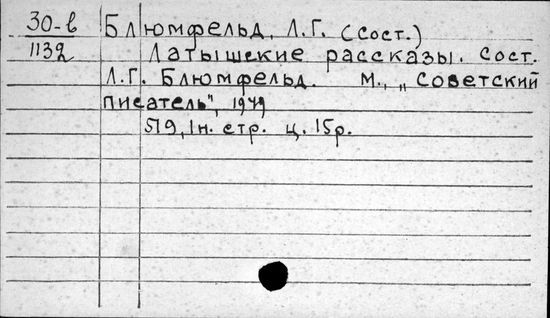 30-в Блюмфельд, Л.Г. (сост.)
1132 Латышские рассказы. Сост.
Л.Г. Блюмфельд. М., „Советский
писатель", 1949
519, 1н. стр. ц. 15р.